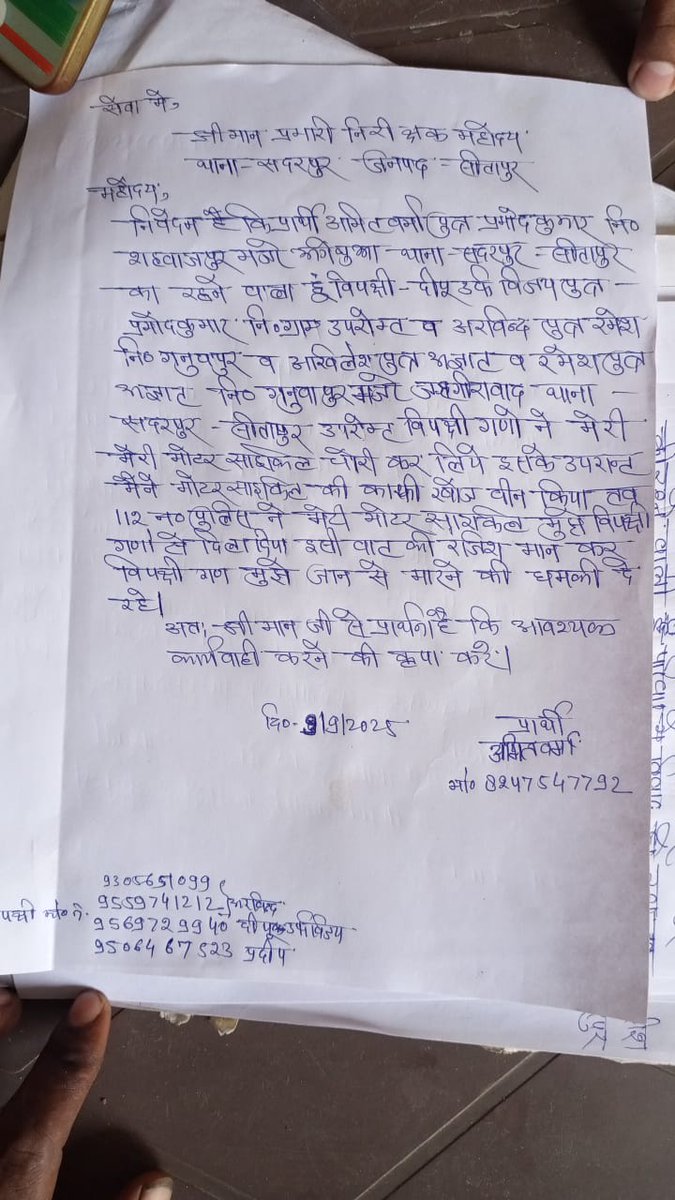 सेवा मे,
श्री मान प्रभारी निरीक्षक महोदय
थाना-सदरपुर जनपद = सीतापुर
महोदय,
निवेदन है कि प्रार्थी अमित वर्मा पुत्र प्रमोद कुमार नि०
शहवाजपुर मजरे थाना-सदरपुर = सीतापुर
का रहने वाला हूं विपक्षी-दीपू उर्फ विजय पुत्र-
प्रमोद कुमार नि० ग्राम उपरोक्त व अरविन्द पुत्र रमेश
नि० गनुवापुर व अखिलेश पुत्र अज्ञात व रमेश पुत्र
अज्ञात नि० गनुवापुर मजरे थाना-
सदरपुर-सीतापुर उपरोक्त विपक्षी गणो ने मेरी
मेरी मोटर साइकिल चोरी कर लिये इसके उपरान्त
मैने मोटरसाइकिल की काफी खोज वीन किया तब
112 न० पुलिस ने मेरी मोटर साइकिल मुझे विपक्षी
गणो से दिला दिया इसी वात की रंजिश मान कर
विपक्षी गण मुझे जान से मारने की धमकी दे
रहे।
अतः श्री मान जी से प्रार्थना है कि आवश्यक
कार्यवाही करने की कृपा करे।
दि०-9/9/2025
प्रार्थी
अमित वर्मा
मो० 8247547792
9305651099
9559741212 अरविन्द
9569729940 दीपू उर्फ विजय
9506467523 प्रदीप